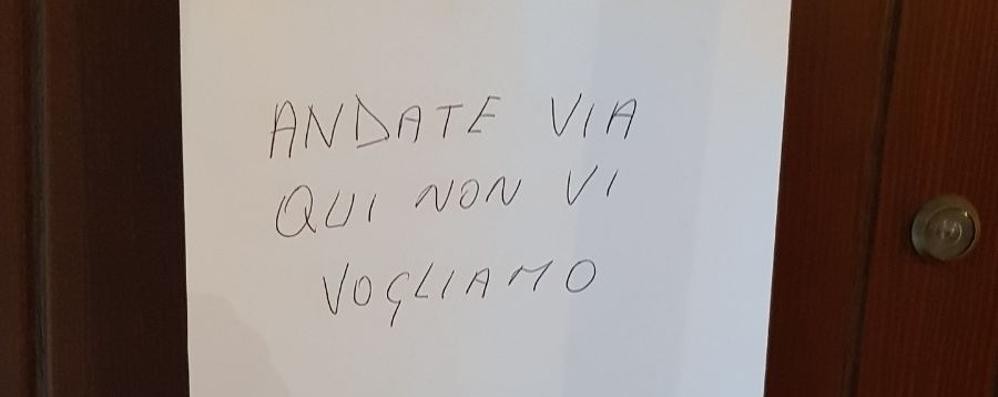 ANDATE VIA
QUI NON VI
VOGLIAMO